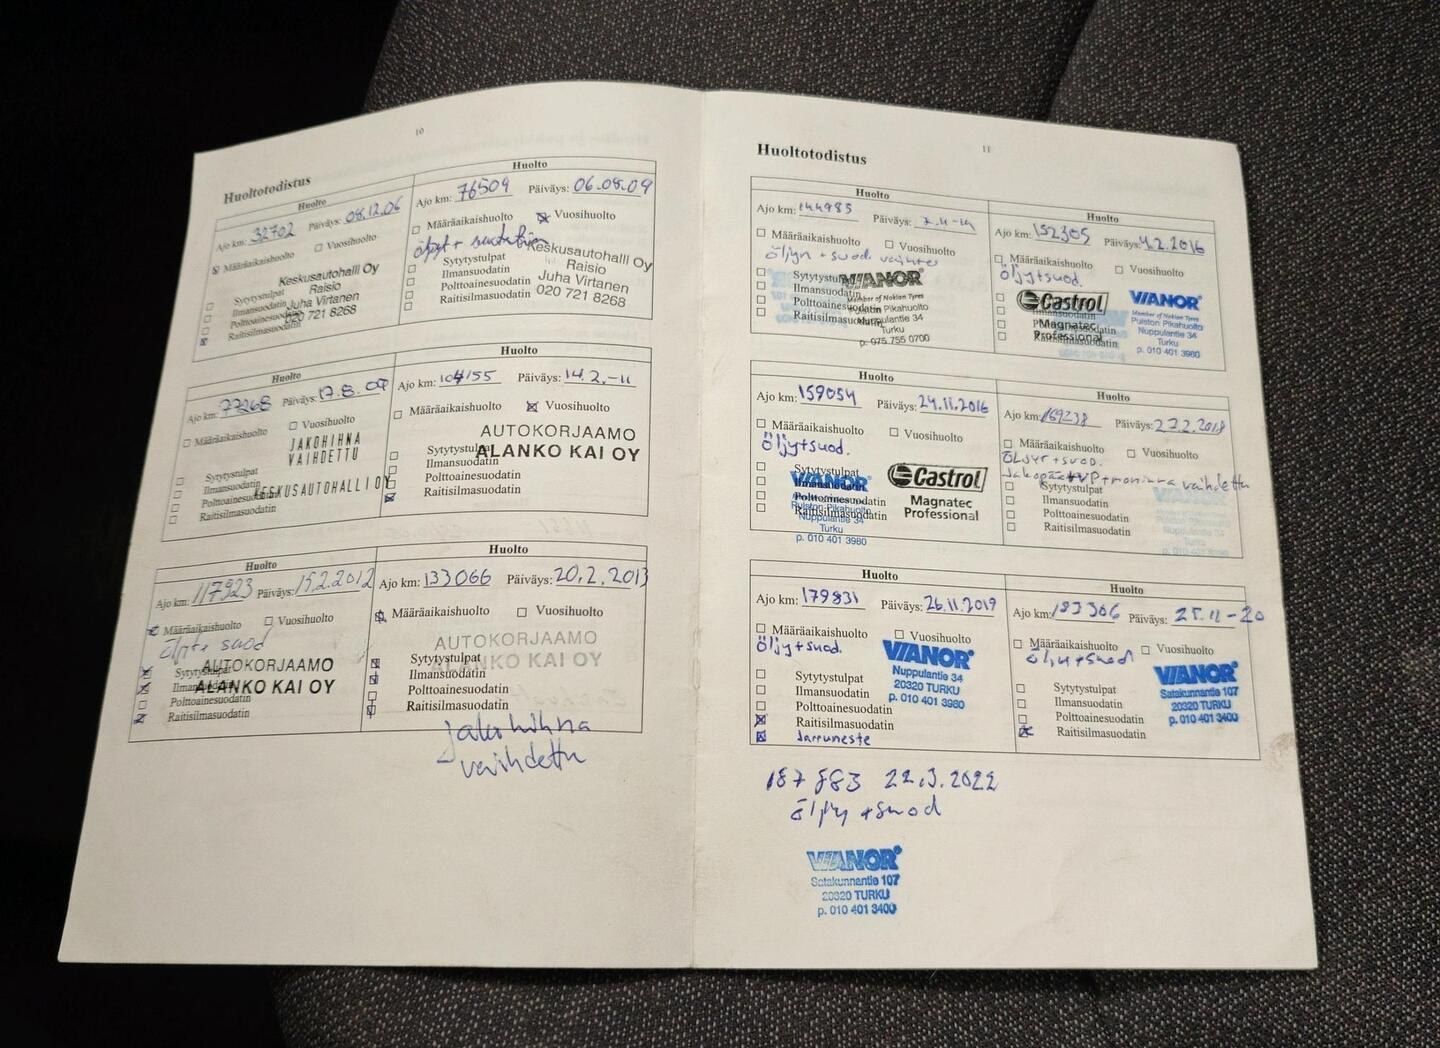 10
Huoltotodistus
Huolto
Ajo km: 32702 Päiväys: 08.12.06
Määräaikaishuolto
Vuosihuolto
Keskusautohalli Oy
Raisio
Juha Virtanen
020 721 8268
Sytytystulpat
Ilmansuodatin
Polttoainesuodatin
Raitisilmasuodatin
Huolto
Ajo km: 76509 Päiväys: 06.08.09
Määräaikaishuolto
Vuosihuolto
Keskusautohalli Oy
Raisio
Juha Virtanen
020 721 8268
Sytytystulpat
Ilmansuodatin
Polttoainesuodatin
Raitisilmasuodatin
Huolto
Ajo km: 77268 Päiväys: 17.8.09
Määräaikaishuolto
Vuosihuolto
JAKOHIHNA
VAIHDETTU
KESKUSAUTOHALLI OY
Sytytystulpat
Ilmansuodatin
Polttoainesuodatin
Raitisilmasuodatin
Huolto
Ajo km: 104155 Päiväys: 14.2.-11
Määräaikaishuolto
Vuosihuolto
AUTOKORJAAMO
ALANKO KAI OY
Sytytystulpat
Ilmansuodatin
Polttoainesuodatin
Raitisilmasuodatin
Huolto
Ajo km: 117923 Päiväys: 15.2.2012
Määräaikaishuolto
Vuosihuolto
AUTOKORJAAMO
ALANKO KAI OY
Sytytystulpat
Ilmansuodatin
Polttoainesuodatin
Raitisilmasuodatin
Huolto
Ajo km: 133066 Päiväys: 20.2.2013
Määräaikaishuolto
Vuosihuolto
AUTOKORJAAMO
ALANKO KAI OY
Sytytystulpat
Ilmansuodatin
Polttoainesuodatin
Raitisilmasuodatin
jakohihna
vaihdettu
11
Huoltotodistus
Huolto
Ajo km: 144985 Päiväys: 7.11-14
Määräaikaishuolto
Vuosihuolto
öljyn + suod. vaihto
VIANOR
Member of Nokian Tyres
Puiston Pikahuolto
Nuppulantie 34
Turku
p. 075 755 0700
Sytytystulpat
Ilmansuodatin
Polttoainesuodatin
Raitisilmasuodatin
Huolto
Ajo km: 152305 Päiväys: 4.2.2016
Määräaikaishuolto
Vuosihuolto
öljy+suod.
Castrol
Magnatec
Professional
VIANOR
Member of Nokian Tyres
Puiston Pikahuolto
Nuppulantie 34
Turku
p. 010 401 3980
Huolto
Ajo km: 159054 Päiväys: 24.11.2016
Määräaikaishuolto
Vuosihuolto
öljy+suod.
Sytytystulpat
Ilmansuodatin
Polttoainesuodatin
Raitisilmasuodatin
VIANOR
Puiston Pikahuolto
Nuppulantie 34
Turku
p. 010 401 3980
Castrol
Magnatec
Professional
Huolto
Ajo km: 169238 Päiväys: 27.2.2018
Määräaikaishuolto
Vuosihuolto
öljyt+suod.
Jakopää+VP+moniura vaihdettu
Sytytystulpat
Ilmansuodatin
Polttoainesuodatin
Raitisilmasuodatin
Huolto
Ajo km: 179831 Päiväys: 26.11.2019
Määräaikaishuolto
Vuosihuolto
öljy+suod.
VIANOR
Nuppulantie 34
20320 TURKU
p. 010 401 3980
Sytytystulpat
Ilmansuodatin
Polttoainesuodatin
Raitisilmasuodatin
Jarruneste
Huolto
Ajo km: 183306 Päiväys: 25.11-20
Määräaikaishuolto
Vuosihuolto
öljy+suod
VIANOR
Satakunnantie 107
20320 TURKU
p. 010 401 3400
Sytytystulpat
Ilmansuodatin
Polttoainesuodatin
Raitisilmasuodatin
187 883 22.3.2022
öljy +suod
VIANOR
Satakunnantie 107
20320 TURKU
p. 010 401 3400